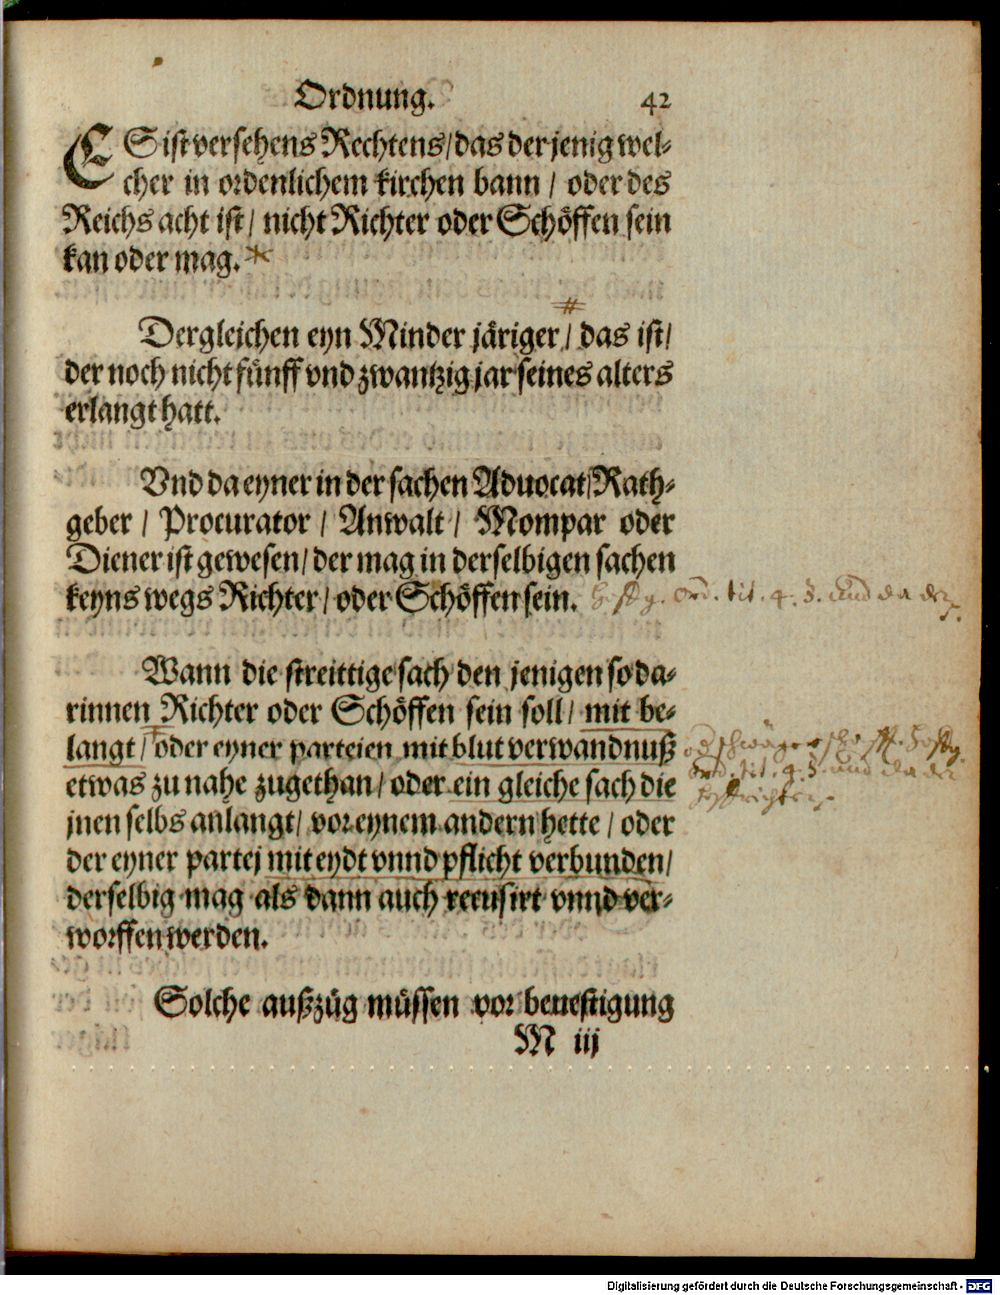 Ordnung. 42
ES ist versehens Rechtens / das der jenig wel-
cher in ordenlichem kirchen bann / oder des
Reichs acht ist / nicht Richter oder Schöffen sein
kan oder mag. *
#
Dergleichen eyn Minder järiger / das ist /
der noch nicht fünff vnd zwantzig jar seines alters
erlangt hatt.
Vnd da eyner in der sachen Aduocat / Rath-
geber / Procurator / Anwalt / Mompar oder
Diener ist gewesen / der mag in derselbigen sachen
keyns wegs Richter / oder Schöffen sein. ord. tit. 4. §. und da der
Wann die streittige sach den jenigen so da-
rinnen Richter oder Schöffen sein soll / mit be-
langt / oder eyner parteien mit blutverwandnuß
etwas zu nahe zugethan / oder ein gleiche sach die
jnen selbs anlangt / vor eynem andern hette / oder
der eyner partej mit eydt vnnd pflicht verbunden /
derselbig mag als dann auch recusirt vnnd ver-
worffen werden.
od schwägerschafft.
ord. tit. 4. §. und da der
Solche außzüg müssen vor beuestigung
M iij
Digitalisierung gefördert durch die Deutsche Forschungsgemeinschaft - DFG